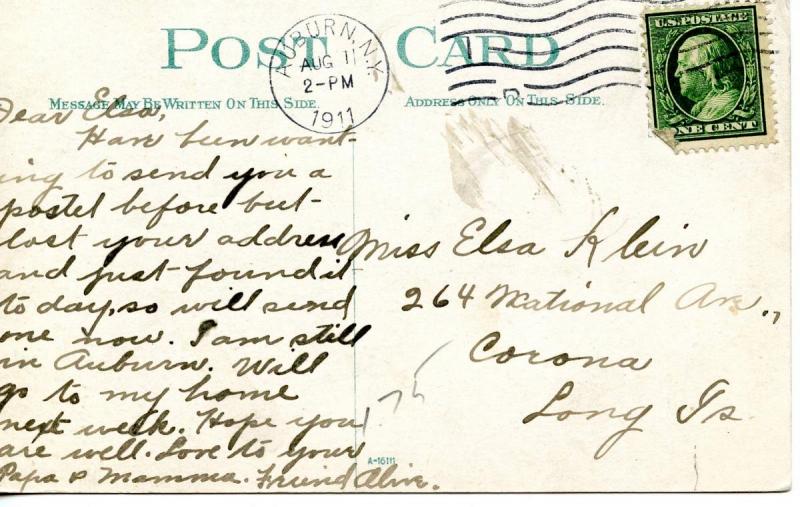 POST CARD
AUBURN, N.Y.
AUG 11
2-PM
1911
U.S. POSTAGE
ONE CENT
MESSAGE MAY BE WRITTEN ON THIS SIDE.
ADDRESS ONLY ON THIS SIDE.
Dear Elsa,
Have been want-
ing to send you a
postel before but
lost your address
and just found it
to day, so will send
one now. I am still
in Auburn. Will
go to my home
next week. Hope you
are well. Love to your
Papa & Mamma. Friend Alive.
Miss Elsa Klein
264 National Ave.,
Corona
Long Is.
A-16111